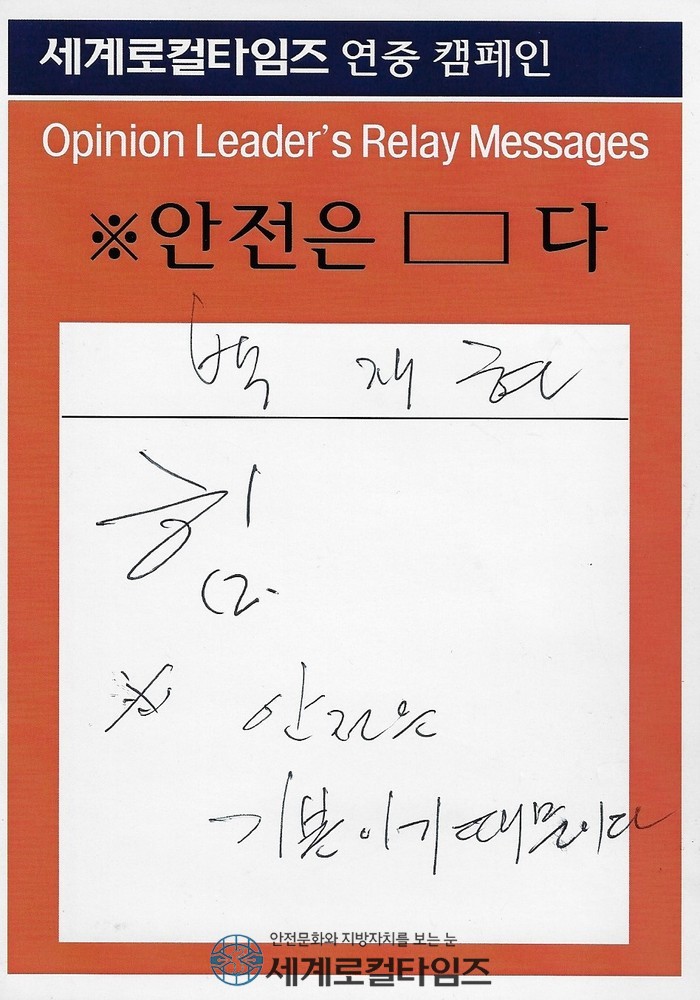 세계로컬타임즈 연중 캠페인
Opinion Leader's Relay Messages
※안전은 □ 다
백 재 현
힘
※ 안전은
기본이기 때문이다
안전문화와 지방자치를 보는 눈
세계로컬타임즈